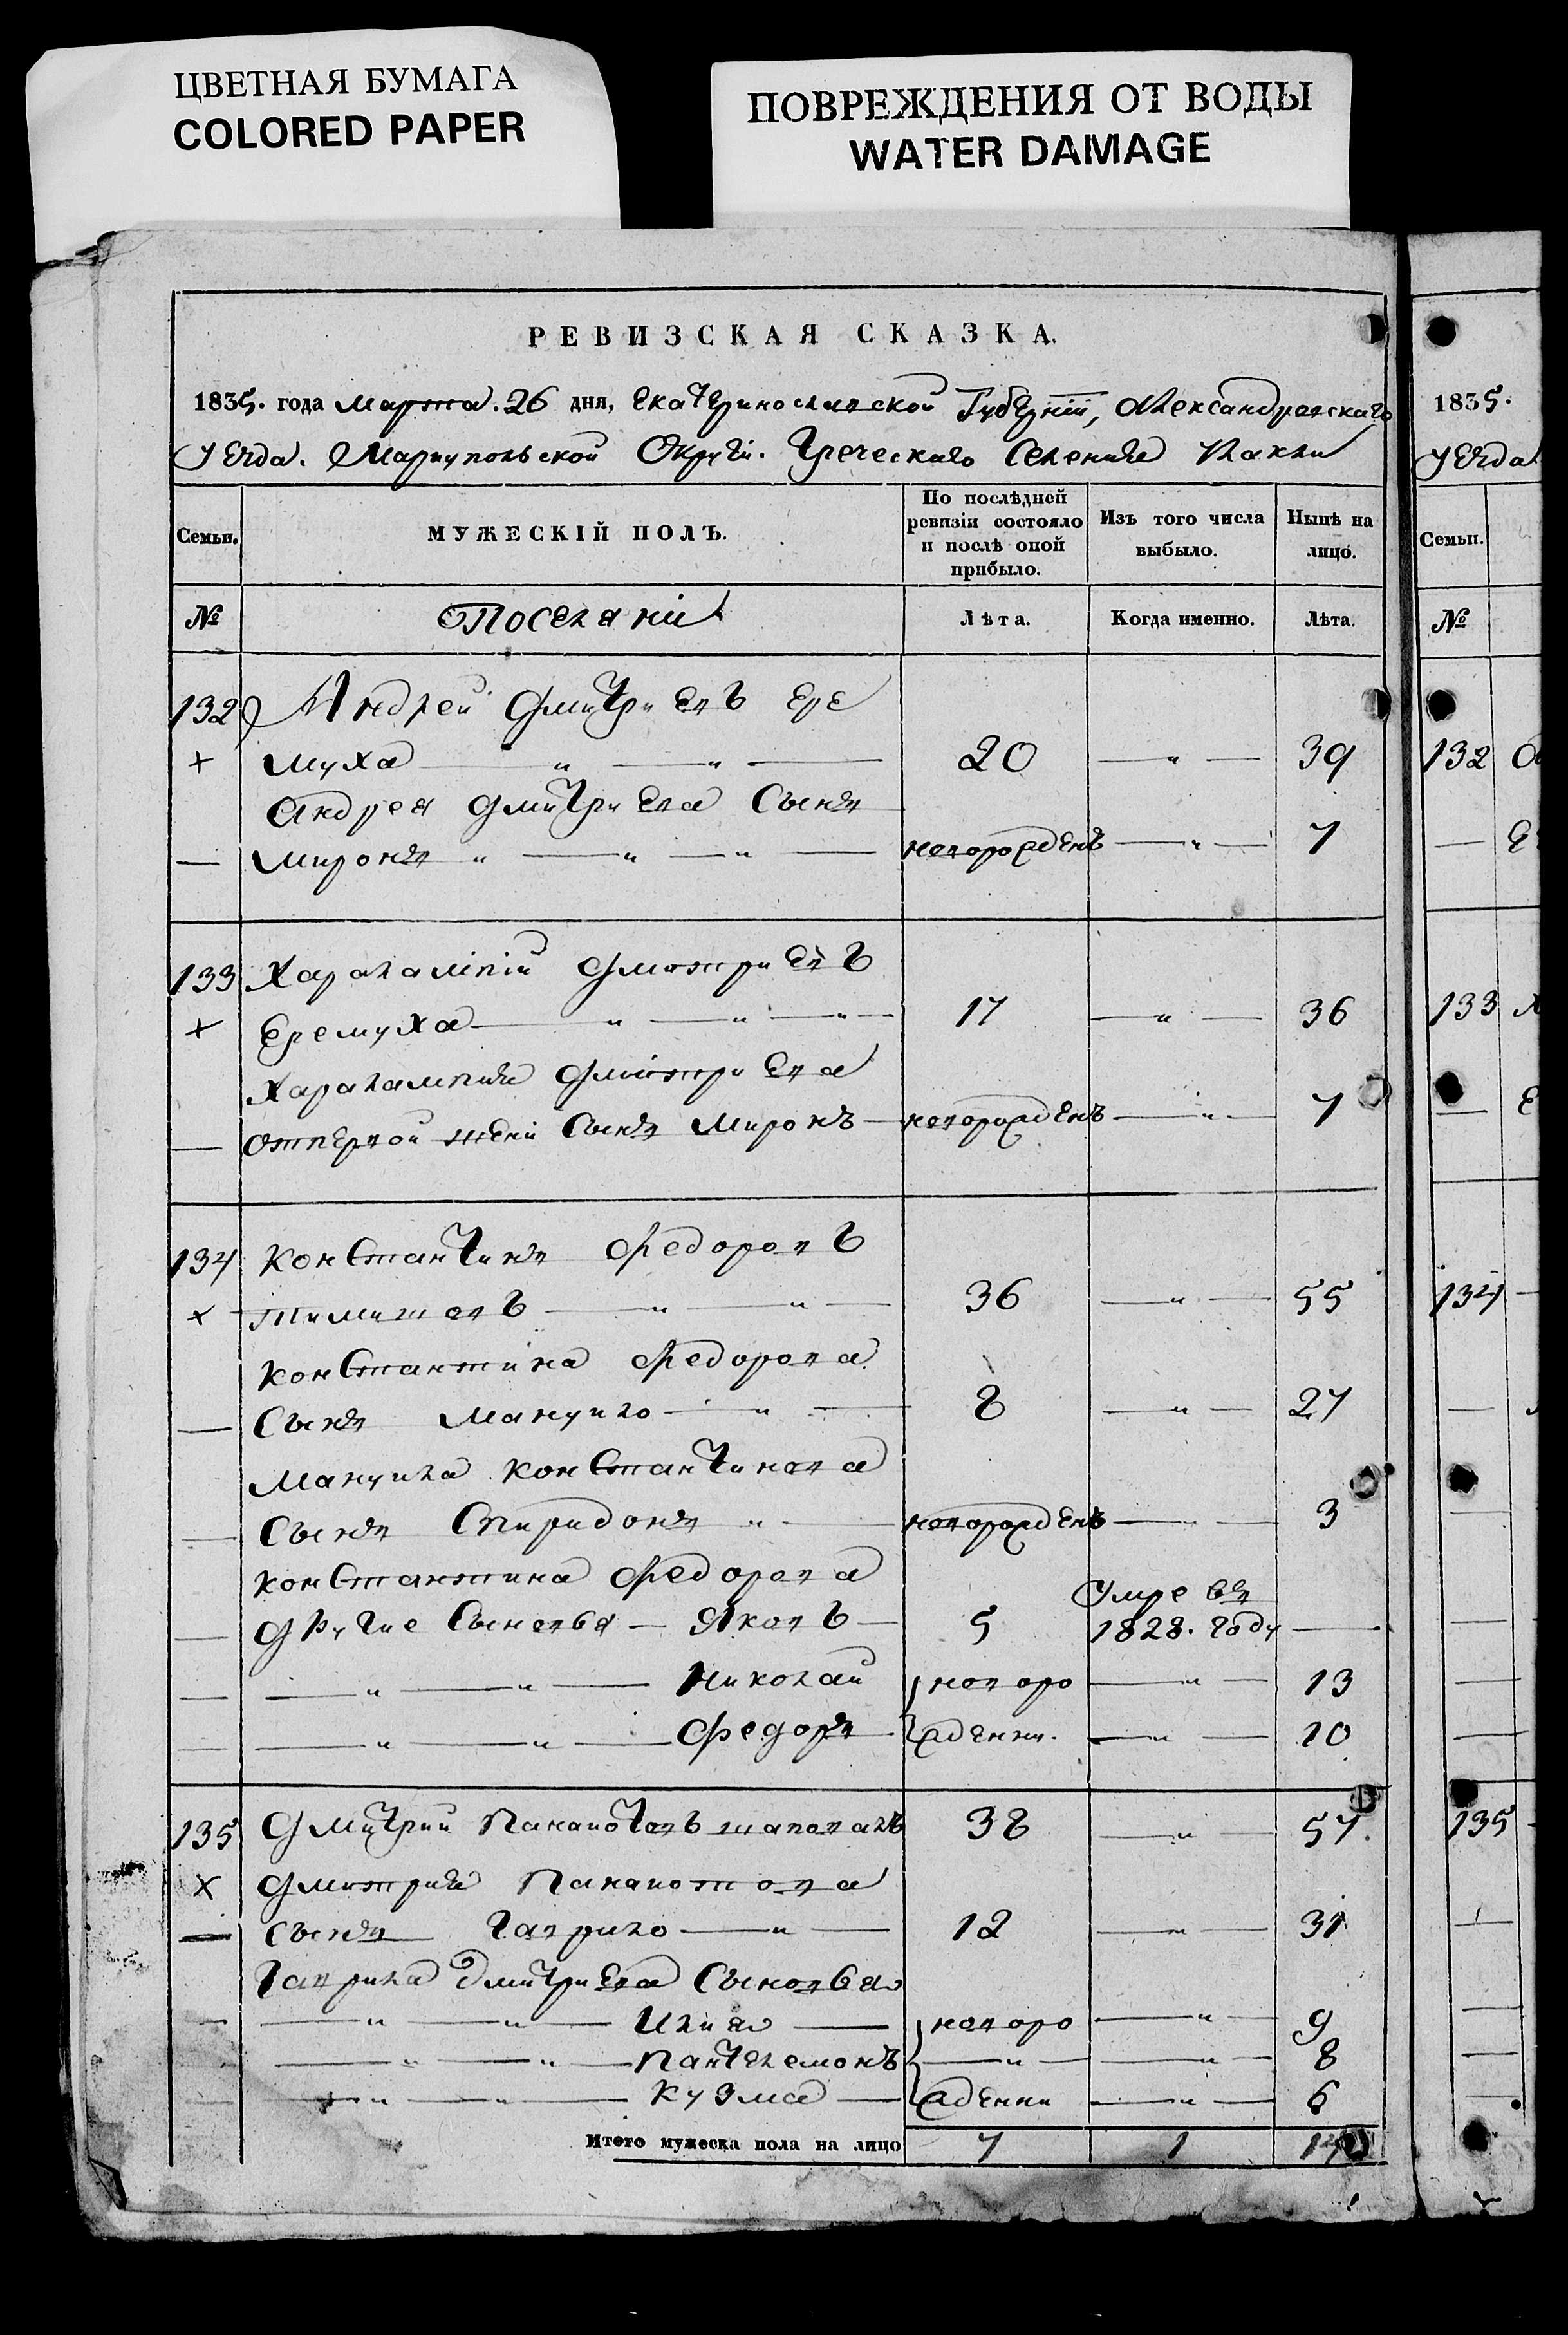 ЦВЕТНАЯ БУМАГА
COLORED PAPER
ПОВРЕЖДЕНИЯ ОТ ВОДЫ
WATER DAMAGE
РЕВИЗСКАЯ СКАЗКА.
1835. года марта. 26 дня, Екатеринославской Губерніи, Александровскаго
уезда. Мариупольской Округи. Греческаго Селения
Семьи. МУЖЕСКІЙ ПОЛЪ. По послѣдней ревизіи состояло и послѣ оной прибыло. Изъ того числа выбыло. Нынѣ на лицо.
№ Поселяни Лѣта. Когда именно. Лѣта.
132 Андрей Дмитриевъ Ере
× муха — " — " — 20 — " — 39
Андрея Дмитриева Сынъ
— Миронъ " — " — " — новорожденъ — " — 7
133 Харалампій Дмитриевъ
× Еремуха — " — " — " — 17 — " — 36
Харалампия Дмитриева
— отпервой жени Сынъ Миронъ — новорожденъ — " — 7
134 Константинъ Федоровъ
× — " — " — 36 — " — 55
Константина Федорова
— Сынъ Мануило — " — 8 — " — 27
Мануила Константинова
— Сынъ Спиридонъ " — новорожденъ — " — 3
Константина Федорова
— Другие Сыновья — Яковъ — 5 Умре въ 1828. году —
— — " — " — Николай новоро — " — 13
— — " — " — Федоръ жденни. — " — 10
135 Дмитрий Панаиотовъ шаповалъ 38 — " — 57.
× Дмитрия Панаиотова
— Сынъ Гаврило — " — 12 — " — 31
Гаврила Дмитриева Сыновья
— — " — " — Илия — новоро — " — 9
— " — " — Пантелемонъ — " — — " — 8
— — " — " — Кузма — жденни — " — 6
Итого мужеска пола на лицо 7 1
1835.
уезда
Семьи.
№
132
133
134
135